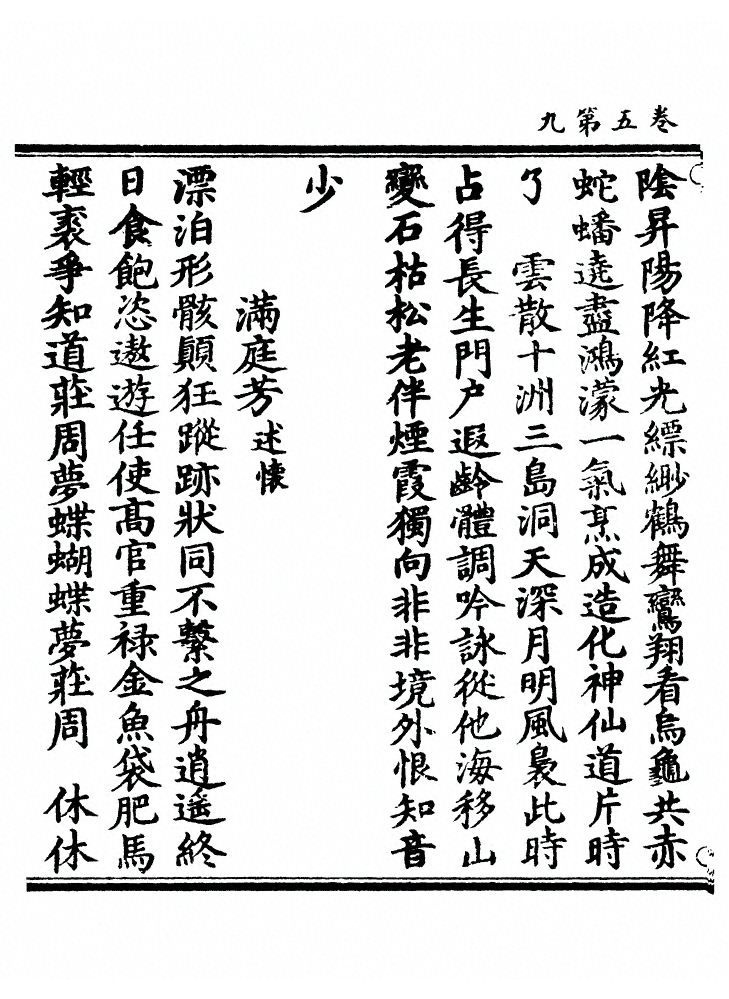 卷五第九
陰昇陽降紅光縹緲鶴舞鸞翔看烏龜共赤
蛇蟠遶盡鴻濛一氣烹成造化神仙道片時
了　雲散十洲三島洞天深月明風裊此時
占得長生門户遐齡體調吟詠從他海移山
變石枯松老伴煙霞獨向非非境外恨知音
少
滿庭芳述懷
漂泊形骸顛狂蹤跡狀同不繫之舟逍遥終
日食飽恣遨遊任使髙官重禄金魚袋肥馬
輕裘爭知道莊周夢蝶蝴蝶夢莊周　休休